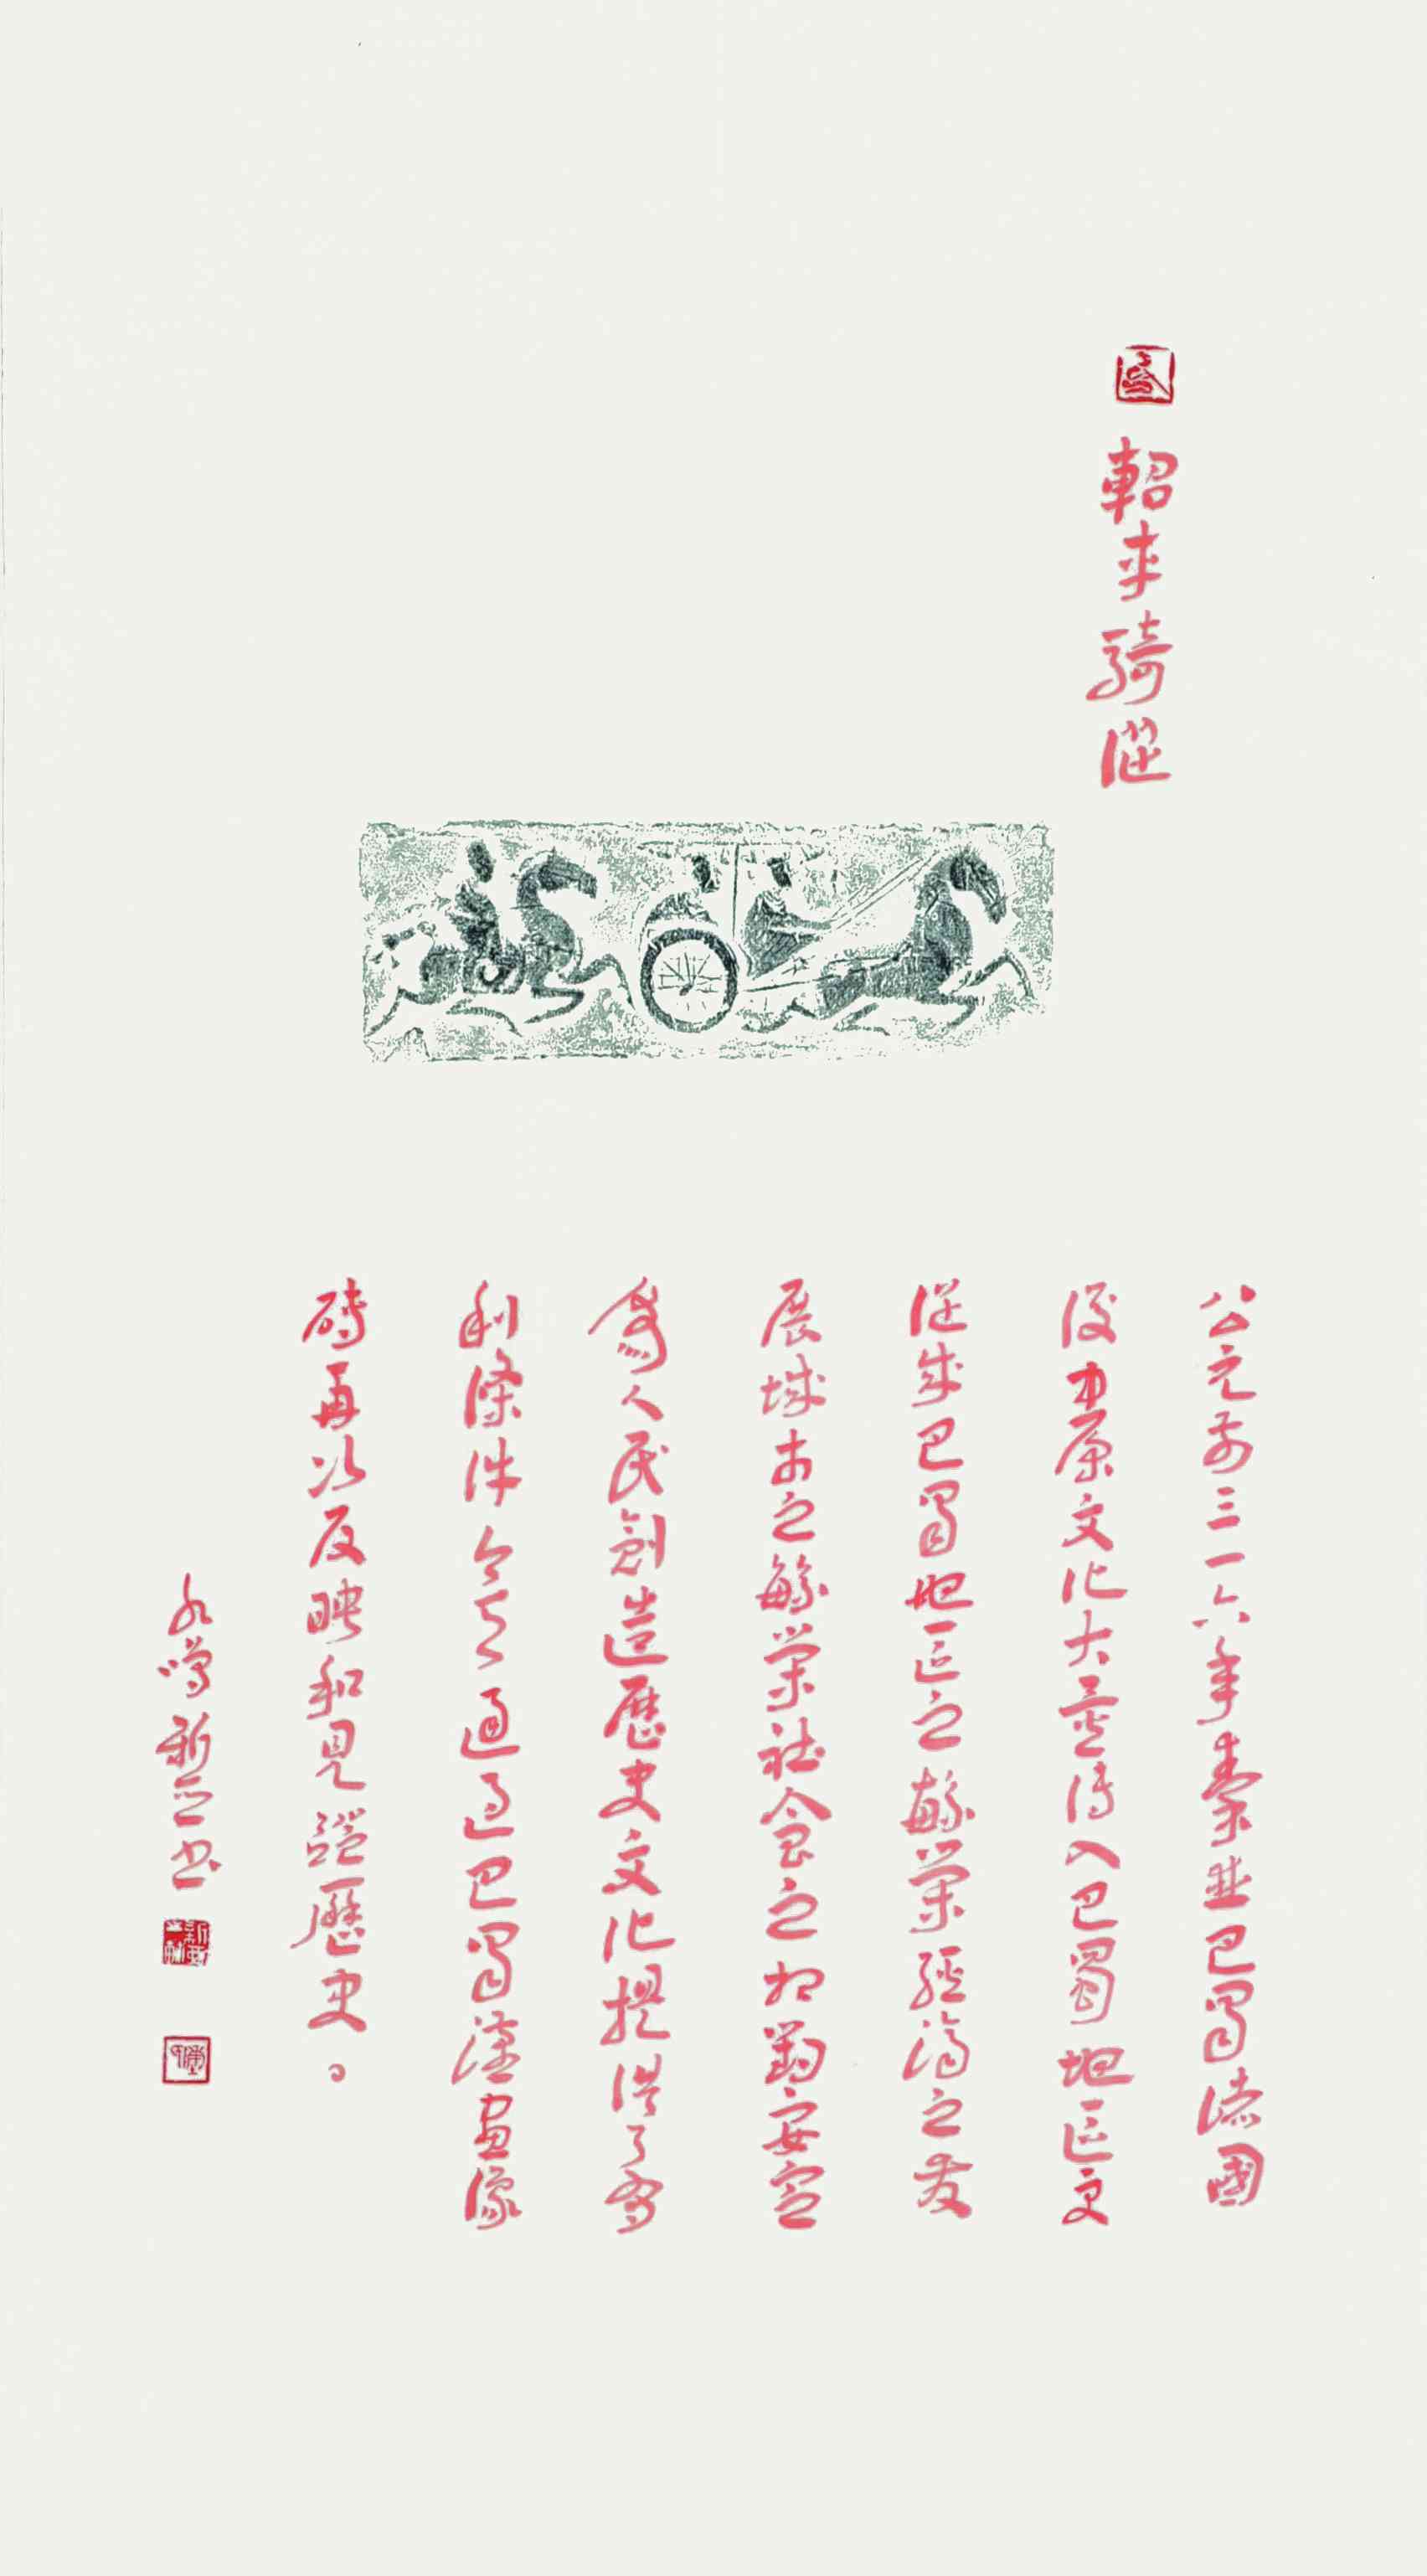 軺車騎從
公元前三一六年秦並巴蜀諸國
後中原文化大量傳入巴蜀地區更
促成巴蜀地區之繁榮經濟之發
展城市之繁榮社會之相對安定
為人民創造歷史文化提供了有
利條件今天通過巴蜀漢畫像
磚再次反映和見證歷史。
書